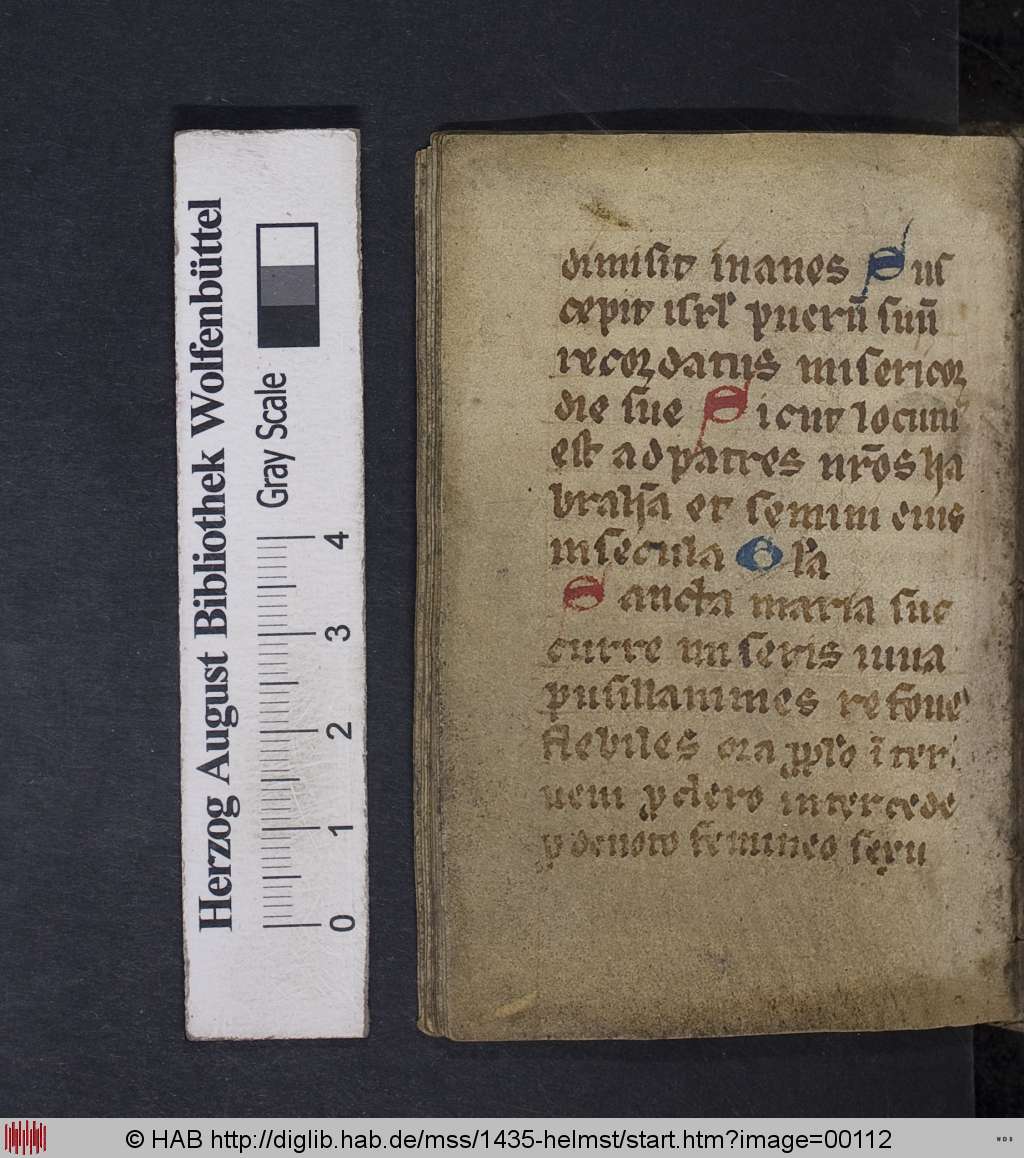 Herzog August Bibliothek Wolfenbüttel
Gray Scale
0 1 2 3 4
dimisit inanes Sus
cepit isrl' puerū suū
recordatus misericor
die sue Sicut locutꝰ
est ad patres nr̄os ha
brahā et semini eius
in secula Gl'a
Sancta maria suc
curre miseris iuua
pusillanimes refoue
flebiles ora ꝓ pplo īter
ueni ꝓ clero intercede
ꝓ deuoto femineo sexu
© HAB http://diglib.hab.de/mss/1435-helmst/start.htm?image=00112